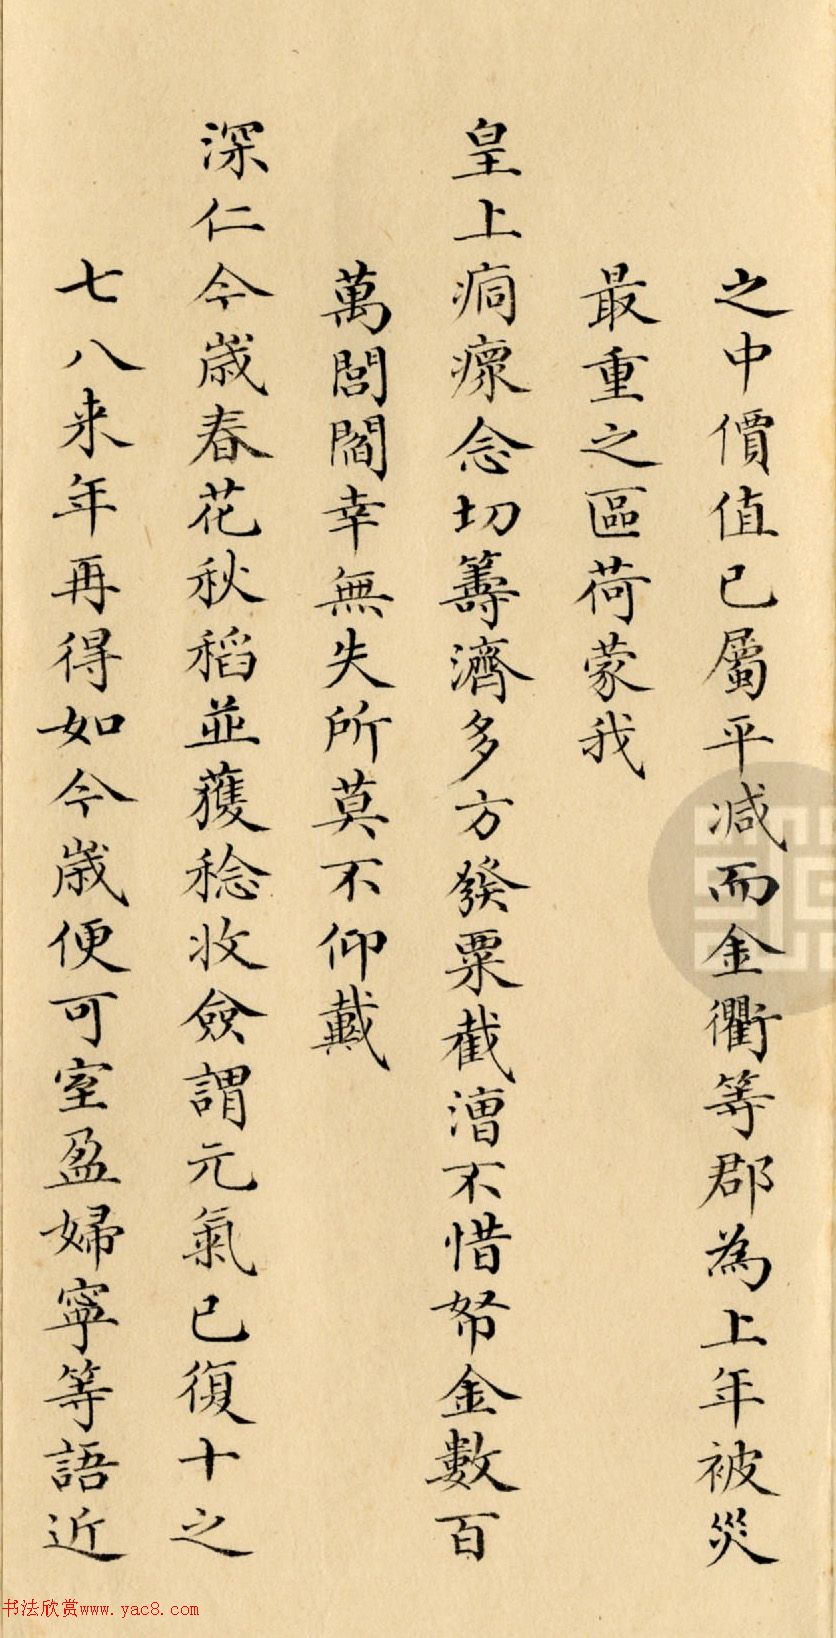 之中價值已屬平減而金衢等郡為上年被災
最重之區荷蒙我
皇上痌瘝念切籌濟多方發粟截漕不惜帑金數百
萬閭閻幸無失所莫不仰戴
深仁今歲春花秋稻並獲稔收僉謂元氣已復十之
七八来年再得如今歲便可室盈婦寧等語近
书法欣赏www.yac8.com